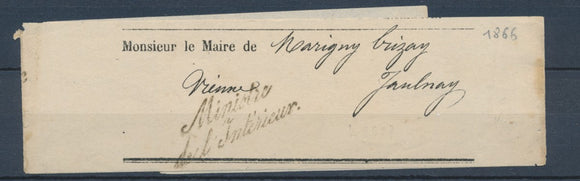 1866
Monsieur le Maire de Marigny brizay
Vienne Jaulnay
Ministre
de l'Intérieur.